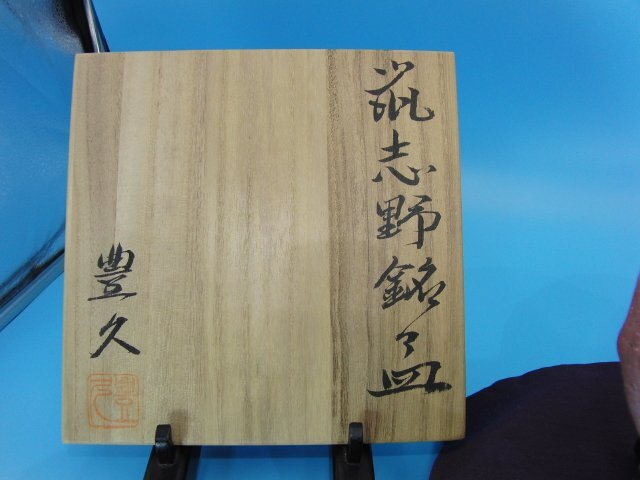 鼠志野銘々皿
豊久
豊久